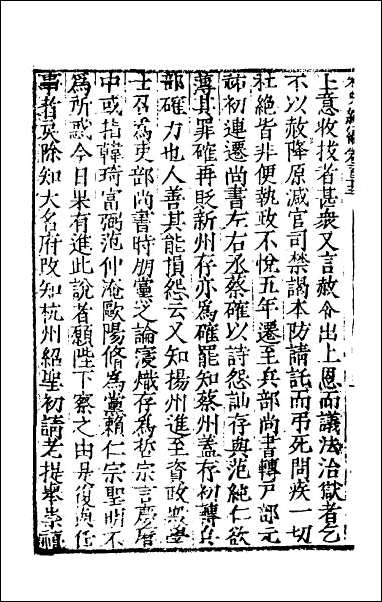 上意收拔者甚衆又言赦令出上恩而議法治獄者乞
不以赦降原減官司禁謁本防請託而弔死問疾一切
杜絕皆非便執政不悅五年遷至兵部尚書轉戶部元
祐初連遷尚書左右丞蔡確以詩怨訕存與范純仁欲
薄其罪確再貶新州存亦爲確罷知蔡州蓋存初轉兵
部確力也人善其能損怨云又知揚州進至資政殿學
士召爲吏部尚書時朋黨之論寖熾存爲哲宗言慶曆
中或指韓琦富弼范仲淹歐陽脩爲黨賴仁宗聖明不
爲所惑今日果有進此說者願陛下察之由是復與任
事者戾除知大名府改知杭州紹聖初請老提舉崇禧